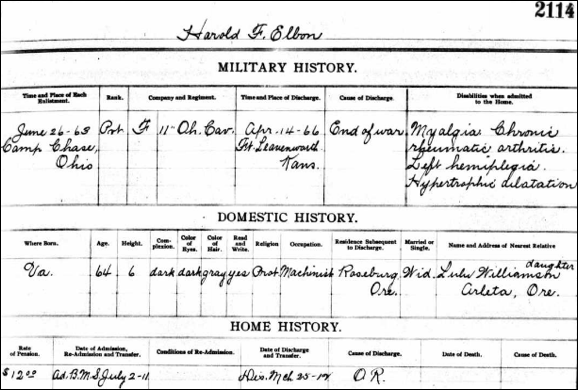 2114
Harold F. Elbon
MILITARY HISTORY.
Time and Place of Each Enlistment. Rank. Company and Regiment. Time and Place of Discharge. Cause of Discharge. Disabilities when admitted to the Home.
June 26-63 Prt. F 11-Oh. Cav. Apr. 14-66 End of war. Myalgia. Chronic
Camp Chase, Ft. Leavenworth rheumatic arthritis.
Ohio Kans. Left hemiplegia.
Hypertrophic dilatation
DOMESTIC HISTORY.
Where Born. Age. Height. Complexion. Color of Eyes. Color of Hair. Read and Write. Religion Occupation. Residence Subsequent to Discharge. Married or Single. Name and Address of Nearest Relative
daughter
Va. 64 6 dark dark gray yes Prot. Machinist Roseburg Wid. Lulu Williamson
Ore. Arleta, Ore.
HOME HISTORY.
Rate of Pension. Date of Admission, Re-Admission and Transfer. Conditions of Re-Admission. Date of Discharge and Transfer. Cause of Discharge. Date of Death. Cause of Death.
$12.00 Ad. B.M. S. July 2-11 Dis. Mch 25-12 O R.